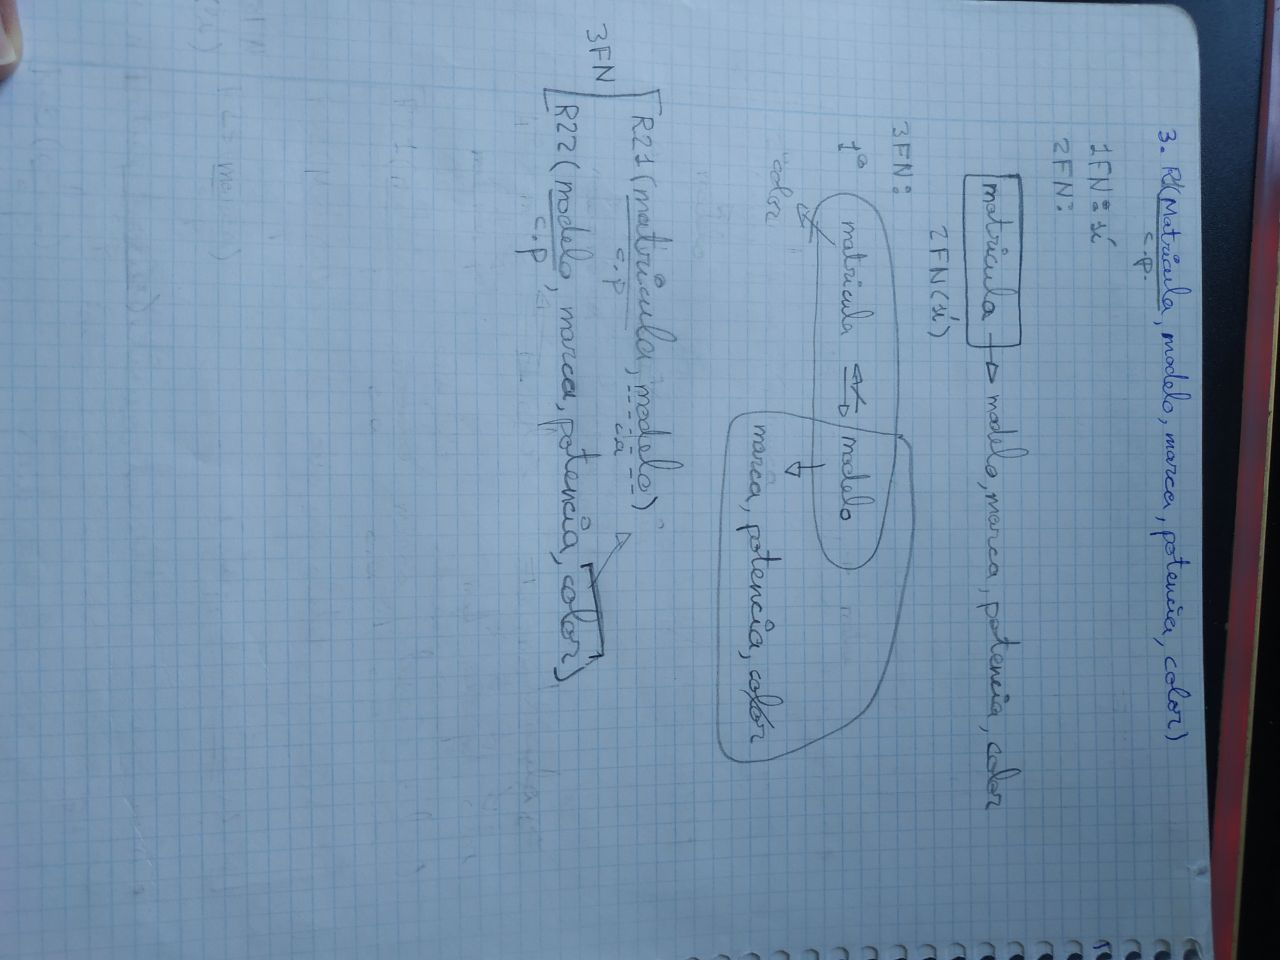 3. R1(Matrícula, modelo, marca, potencia, color)
c.p.
1FN: sí
2FN:
matricula → modelo, marca, potencia, color
2FN(sí)
3FN:
1º matricula modelo
color
marca, potencia, color
3FN
R21(matricula, modelo)
c.p ca
R22(modelo, marca, potencia, color)
c.p